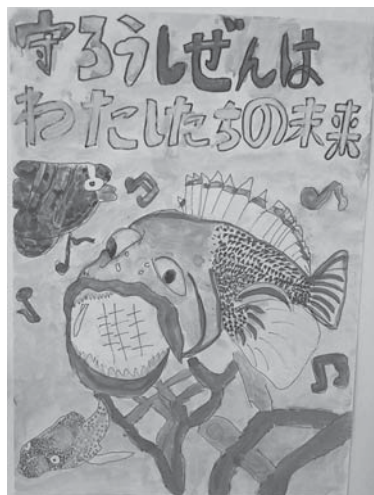 守ろうしぜんは
わたしたちの未来